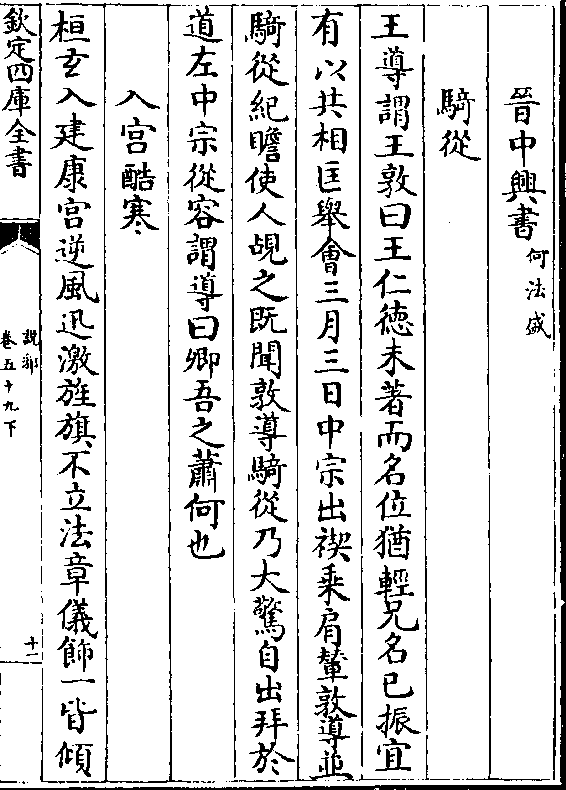 晉中興書何法盛
騎從
王導謂王敦曰王仁德未著而名位猶輕兄名已振宜
有以共相匡舉會三月三日中宗出禊乘肩輦敦導並
騎從紀瞻使人覘之既聞敦導騎從乃大驚自出拜於
道左中宗從容謂導曰卿吾之蕭何也
入宫酷寒
桓𤣥入建康宫逆風迅激旌旗不立法章儀飾一皆傾
欽定四庫全書
說郛
卷五十九下
十一